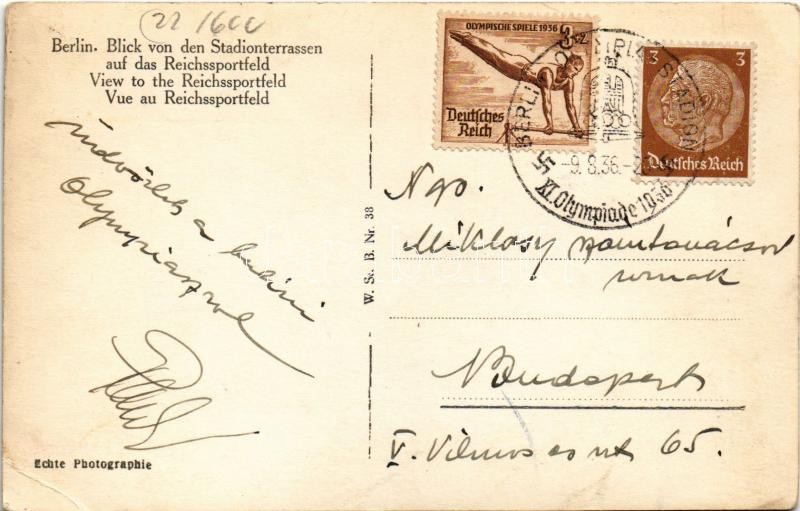 22/600
Berlin. Blick von den Stadionterrassen
auf das Reichssportfeld
View to the Reichssportfeld
Vue au Reichssportfeld
OLYMPISCHE SPIELE 1936
3+2
Deutsches
Reich
3 3
Deutsches Reich
BERLIN OLYMPIA-STADION
-9.8.36.-2
XI. Olympiade 1936
Üdvözlet a berlini
Olympiászról
W. S. B. Nr. 38
Ngs.
Miklósy
urnak
Budapest
V. Vilmos cs. út 65.
Echte Photographie